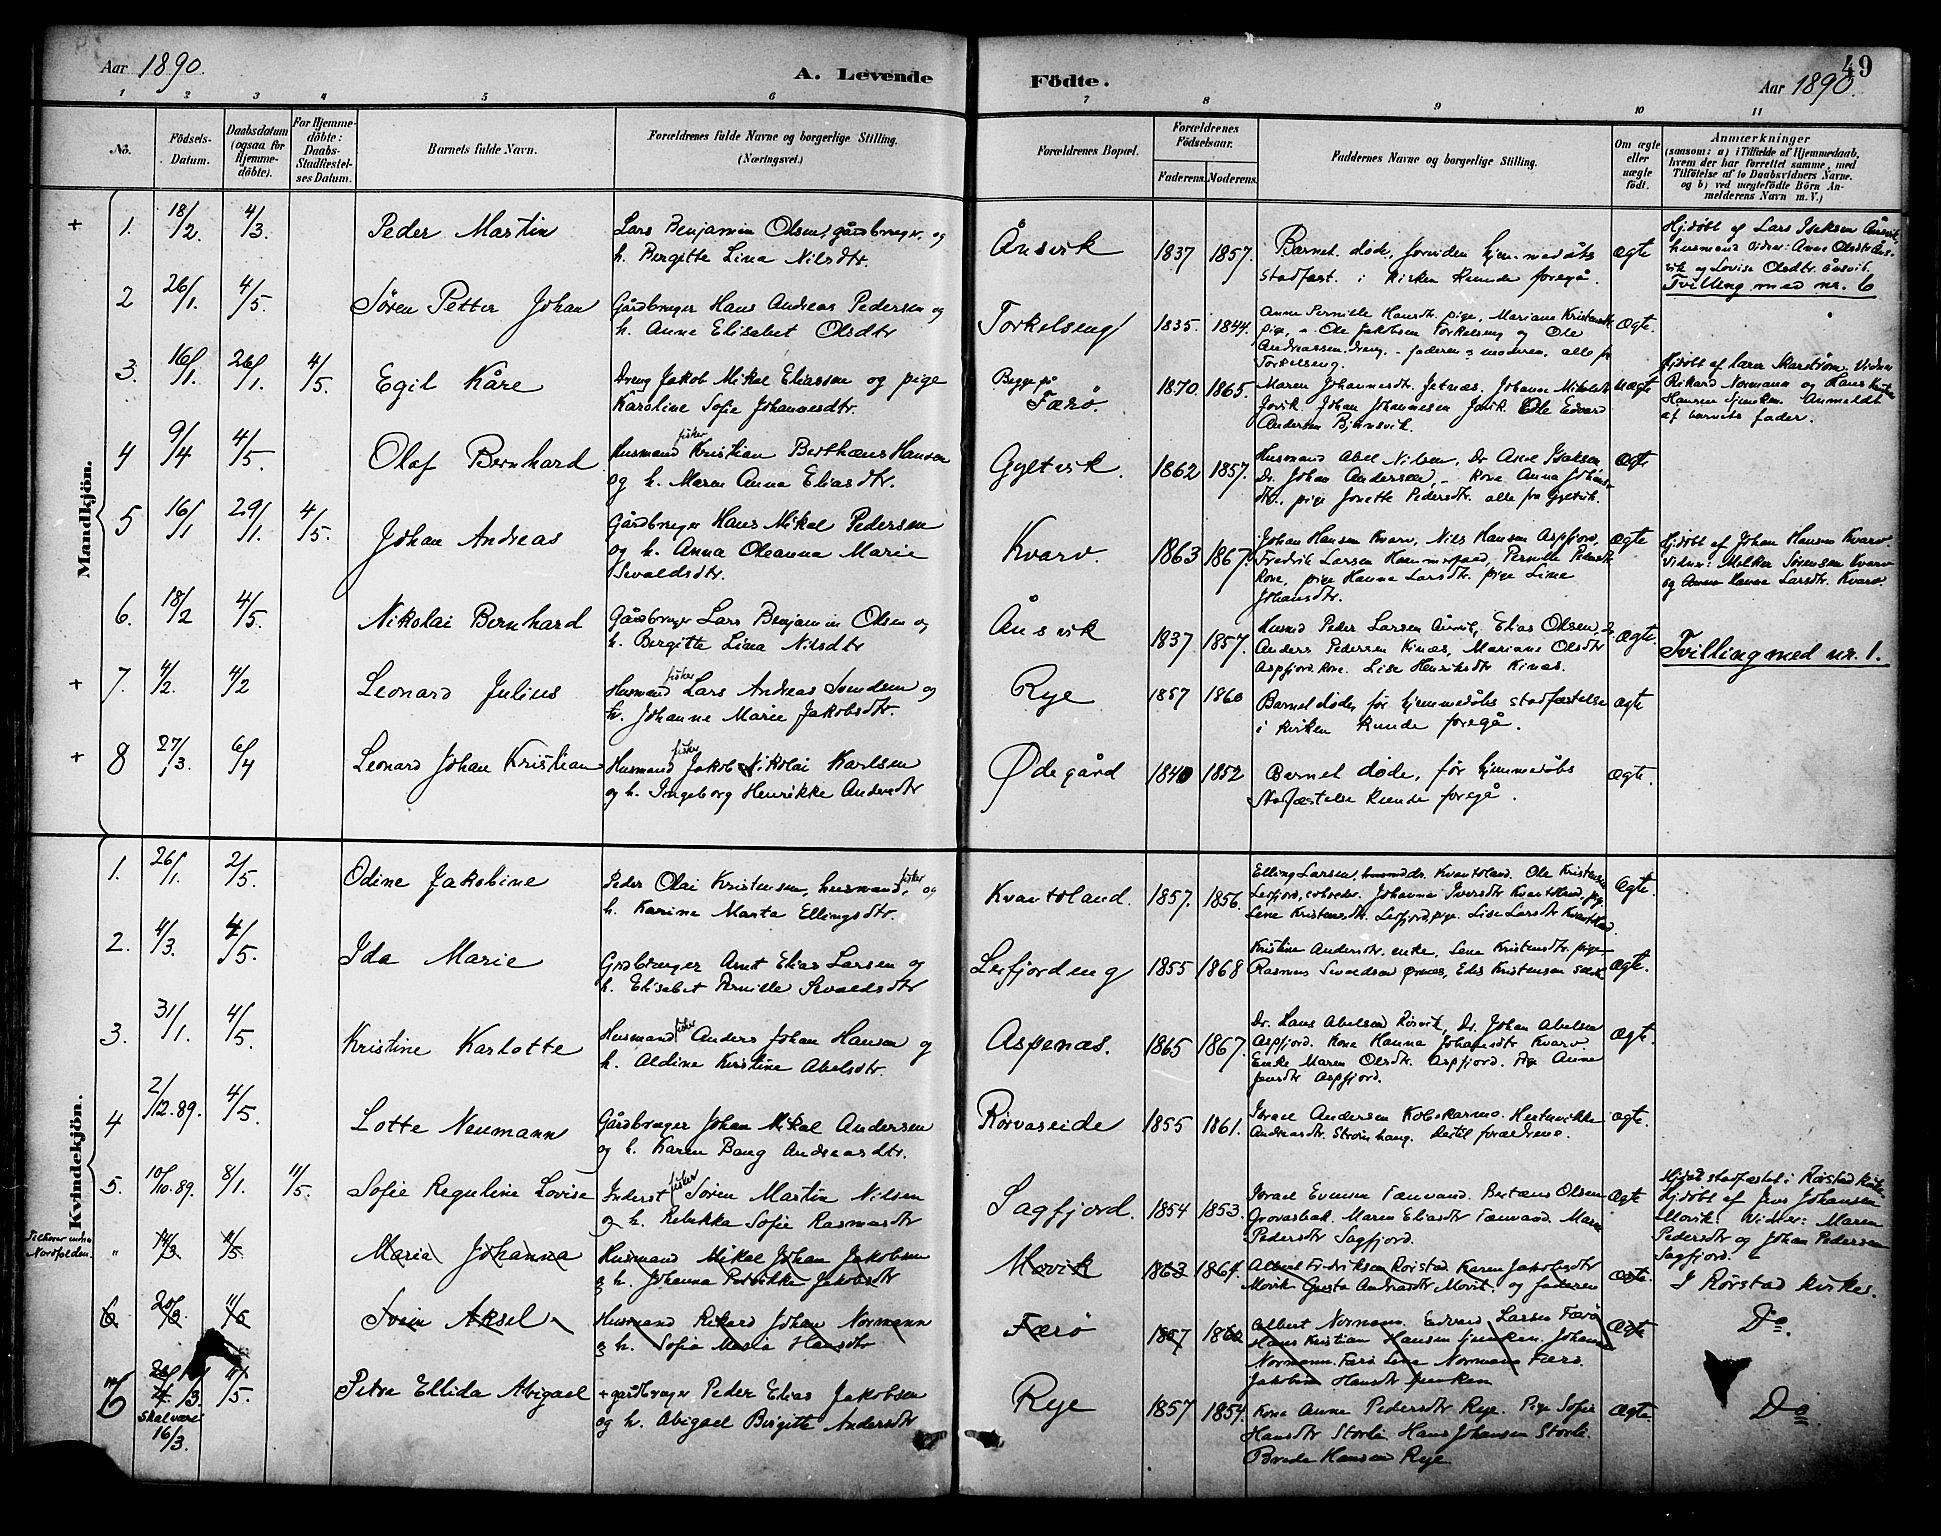 Aar 1890.
A. Levende
Födte.
49
Aar 1890.
1 2 3 4 5 6 7 8 9 10 11
No.
Födsels-Datum.
Daabsdatum (ogsaa for Hjemmedöbte).
For Hjemmedöbte: Daabs-Stadfæstelses Datum.
Barnets fulde Navn.
Forældrenes fulde Navne og borgerlige Stilling. (Næringsvei.)
Forældrenes Bopæl.
Forældrenes Födselsaar.
Faderens. Moderens.
Faddernes Navne og borgerlige Stilling.
Om ægte eller uægte födt.
Anmærkninger
(saasom: a) i Tilfælde af Hjemmedaab,
hvem der har forrettet samme, med
Tilföielse af to Daabsvidners Navne.
og b) ved uægtefödte Börn An-
melderens Navn m. V.)
Mandkjön.
+ 1. 18/2. 4/3. Peder Martin
Lars Benjamin Olsen, gårdbruger. og
h. Bergitte Lina Nilsdtr.
Ånsvik 1837 1857.
Barnet døde, forinden hjemmedåbs
stadfæst. i kirken kunde foregå.
ægte
Hjdøbt af Lars Isaksen Ånsvik,
husmand Vidner: Anne Olsdtr Åns-
vik og Lovise Olsdtr. Ånsvik.
Tvilling med nr. 6
2 26/1. 4/5. Søren Petter Johan
Gårdbruger Hans Andreas Pedersen og
h. Anne Elisabet Olsdtr
Torkelseng 1835. 1844.
Anne Pernille Hansdtr. pige, Mariane Kristensdtr
pige, Ole Jakobsen Torkelseng og Ole
Andreassen dreng - faderen & moderen. alle fr
Torkelseng.
Ægte.
3. 16/1. 26/1. 4/5. Egil Kåre
Dreng Jakob Mikal Eliassen og pige
Karoline Sofie Johannesdtr.
Begge på
Færø. 1870. 1865.
Maren Johannesdtr. Johanne Mikalsdtr
Johan Johannesen Ole Edvard
Andersen Bjørnsvik.
uægte
Hjdøbt af Vidner
Rikard Normann og Hans Kristian
Hansen Anmeldt
af barnets fader.
4 9/4 4/5. Olaf Bernhard
Husmand fisker Kristian Berthæus Hansen
og h. Maren Anna Eliasdtr.
Gyltvik. 1862 1857.
Husmand Abel Nilsen, Dr Axel Isaksen,
Dr. Johan Andersen, - Kone Anna Johans-
dtr., pige Jonette Pedersdtr. alle fra Gyltvik.
Ægte
5 16/1 29/1. 4/5. Johan Andreas
Gårdbruger Hans Mikal Pedersen
og h. Anna Oleanna Marie
Sevaldsdtr.
Kvarv. 1863 1867.
Johan Hansen Kvarv, Nils Hansen Aspfjord,
Fredrik Larsen Pernille Pedersdtr
Kone, pige Hanna Larsdtr. pige Line
Johansdtr.
ægte
Hjdøbt af Johan Hansen Kvarv.
Vidner: Melker Sørensen Kvarv
og Hanna Larsdtr. Kvarv.
6. 18/2 4/5. Nikolai Bernhard
Gårdbruger Lars Benjamin Olsen og
h. Bergitte Lina Nilsdtr
Ånsvik 1837 1857.
Husmd Peder Larsen Ånsvik, Elias Olsen, Dr
Anders Pedersen Kinæs, Mariane Olsdtr
Aspfjord kone. Lise Henriksdtr Kinæs.
Ægte.
Tvilling med nr. 1.
+ 7. 4/2. 4/2 Leonard Julius
Husmand fisker Lars Andreas Svendsen og
h. Johanne Marie Jakobsdtr.
Rye 1857 1860
Barnet døde, før hjemmedåbs stadfæstelse
i kirken kunde foregå.
ægte
+ 8 27/3. 6/4 Leonard Johan Kristian
Husmand fisker Jakob Nikolai Karlsen
og h. Ingeborg Henrikke Andersdtr
Ødegård 1840 1852
Barnet døde, før hjemmedåbs
stadfæstelse kunde foregå.
ægte.
Kvindekjön.
1. 26/1. 2/5. Odine Jakobine
Peder Olai Kristensen, husmand, fisker og
h. Karine Marta Ellingsdtr.
Kvantoland. 1857. 1856.
Elling Larsen, dr. Kvantoland. Ole Kristensen
Leifjord, Johanna Iversdtr Kvantoland, pige
Lene Kristensdtr. Leifjord pige. Lise Larsdtr Kvantoland.
Ægte.
2. 4/3. 4/5. Ida Marie
Grdbruger Arnt Elias Larsen og
h. Elisabet Pernille Sevaldsdtr
Leifjordeng 1855 1868
Kristine Andersdtr. enke, Lene Kristensdtr. pige
Rasmus Sevaldsen Ørnes, Edis Kristensen
Ægte.
3. 31/1. 4/5. Kristine Karlotte
Husmand fisker Anders Johan Hansen og
h. Aldine Kristine Abelsdtr.
Aspenæs. 1865 1867.
Dr. Hans Abelsen Rørvik, Dr. Johan Abelsen
Aspfjord. Kone Hanna Johansdtr Kvarv
Enke Maren Olsdtr. Aspfjord. Pige Anne
Jensdtr Aspfjord.
Ægte.
4 2/12.89. 4/5. Lotte Neumann
Gårdbruger Johan Mikal Andersen
og h. Karen Bang Andreasdtr.
Rørvaseide 1855 1861.
Israel Andersen Kobskarmo. Hertinikke
Andreasdtr. Strømhaug. Dertil forældrene.
ægte.
5. 10/10.89. 8/1. 11/5. Sofie Reguline Lovise
Inderst fisker Søren Martin Nilsen
og h. Rebekka Sofie Rasmusdtr
Sagfjord. 1854 1853.
Israel Evensen Tennvand. Bertæus Olsen
Grovasbak. Maren Eliasdtr Tennvand. Maren
Pedersdtr Sagfjord.
Ægte
Hjdåb stadfæstet i Rørstad kirke.
Hjdøbt af Jens Johansen
Movik. Vidner: Maren
Pedersdtr og Johan Pedersen
Sagfjord.
Tilhører
Nordfolden. " 14/3 11/5 Maria Johanna
Husmand Mikal Johan Jakobsen
& h. Johanna Jakobsdtr
Movik 1863 1864.
Albert Fredriksen Rørstad Karen Jakobsdtr
Movik Gusta Andreasdtr Movik. og faderen
ægte.
I Rørstad kirke.
6 20/3. 11/5 Svein Aksel
Husmand Rikard Johan Normann
& h. Sofie Marta Hansdtr
Færø 1857 1860
Albert Normann. Edvard Larsen Færø
Hans Kristian Hansen Johanna
Normann Færø Lene Normann Færø.
Jakobine Hansdtr
Ægte
Do.
6 11/5 Petra Ellida Abigael
Skal være
16/3.
+ gårdbruger Peder Elias Jakobsen
og h. Abigael Birgitte Andersdtr
Rye 1857 1854.
Kone Anne Pedersdtr Rye. Pige Sofie
Hansdtr Storli. Hans Johansen Storli.
Brede Hansen Rye
Ægte.
Do